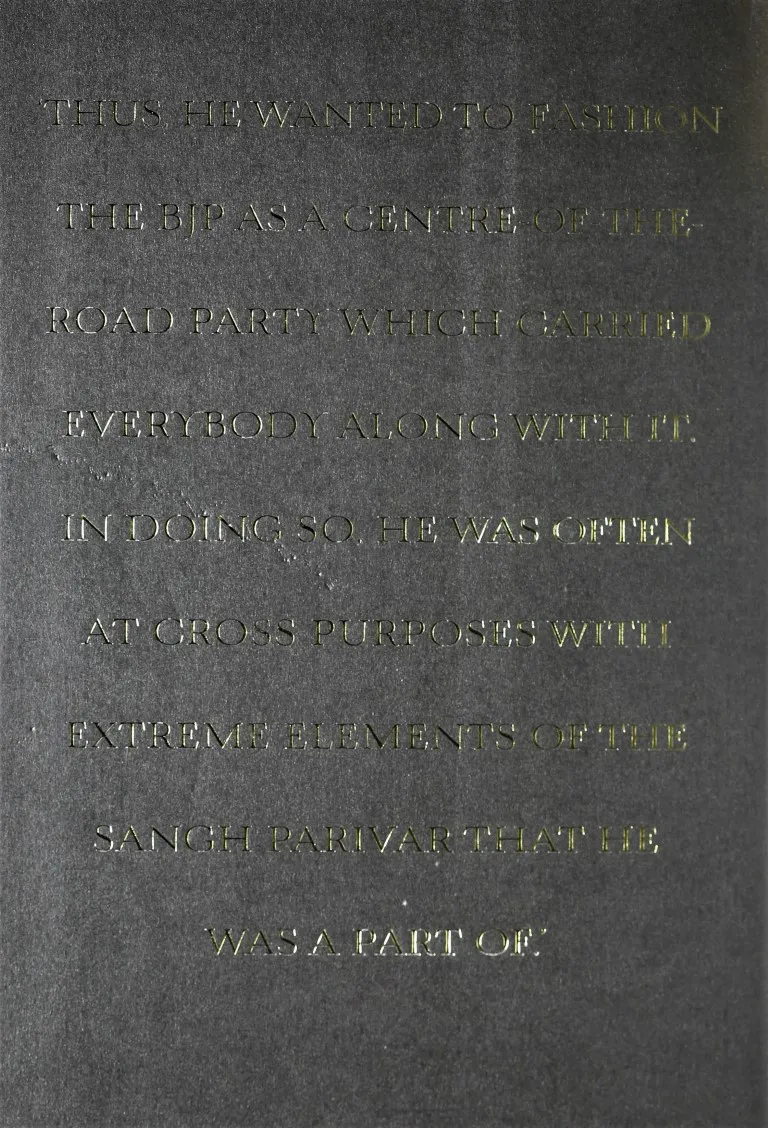 THUS, HE WANTED TO FASHION
THE BJP AS A CENTRE-OF-THE-
ROAD PARTY WHICH CARRIED
EVERYBODY ALONG WITH IT.
IN DOING SO, HE WAS OFTEN
AT CROSS PURPOSES WITH
EXTREME ELEMENTS OF THE
SANGH PARIVAR THAT HE
WAS A PART OF.'